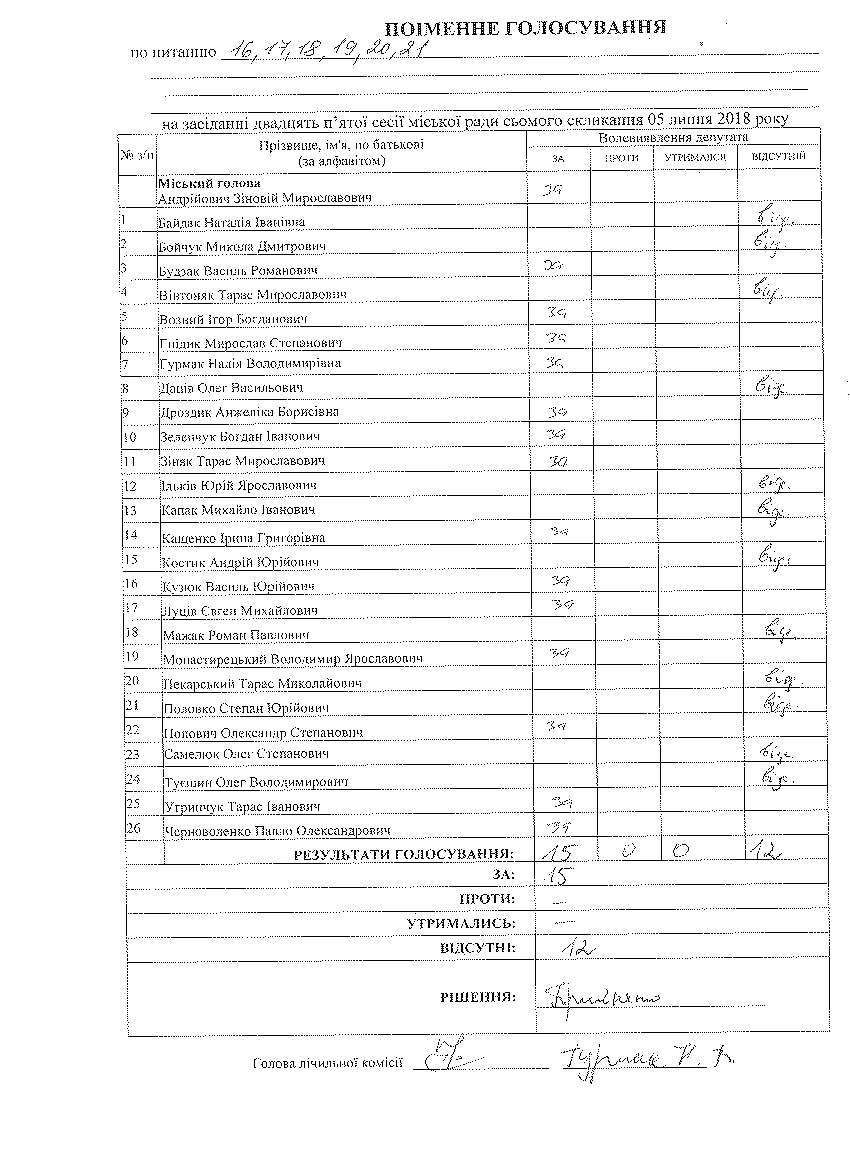 ПОІМЕННЕ ГОЛОСУВАННЯ
по питанню 16, 17, 18, 19, 20, 21
на засіданні двадцять п'ятої сесії міської ради сьомого скликання 05 липня 2018 року
№ з/п Прізвище, ім'я, по батькові (за алфавітом) Волевиявлення депутата
ЗА ПРОТИ УТРИМАВСЯ ВІДСУТНІЙ
Міський голова
Андрійович Зіновій Мирославович за
1 Байдак Наталія Іванівна від.
2 Бойчук Микола Дмитрович від.
3 Будзак Василь Романович за
4 Вінтоняк Тарас Мирославович від.
5 Возний Ігор Богданович за
6 Гнідик Мирослав Степанович за
7 Гурмак Надія Володимирівна за
8 Данів Олег Васильович від.
9 Дроздик Анжеліка Борисівна за
10 Зеленчук Богдан Іванович за
11 Зіняк Тарас Мирославович за
12 Ільків Юрій Ярославович від.
13 Капак Михайло Іванович від.
14 Кащенко Ірина Григорівна за
15 Костик Андрій Юрійович від.
16 Кузюк Василь Юрійович за
17 Луців Євген Михайлович за
18 Мажак Роман Павлович від.
19 Монастирецький Володимир Ярославович за
20 Пекарський Тарас Миколайович від.
21 Половко Степан Юрійович від.
22 Попович Олександр Степанович за
23 Самелюк Олег Степанович від.
24 Туєшин Олег Володимирович від.
25 Угринчук Тарас Іванович за
26 Черноволенко Павло Олександрович за
РЕЗУЛЬТАТИ ГОЛОСУВАННЯ: 15 0 0 12
ЗА: 15
ПРОТИ: —
УТРИМАЛИСЬ: —
ВІДСУТНІ: 12
РІШЕННЯ: Прийнято
Голова лічильної комісії Гурмак Н. В.